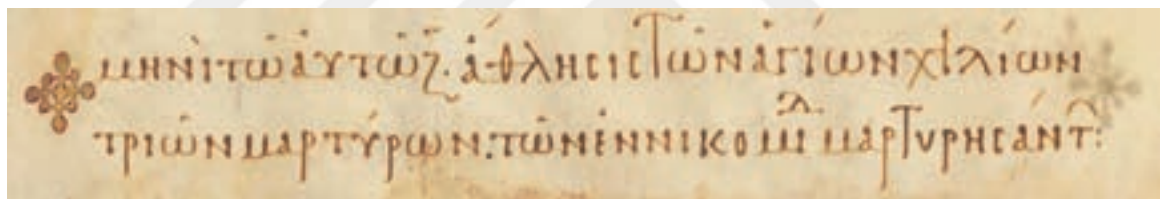 μηνὶ τῶ αὐτῶ ζ. ἄθλησις τῶν ἁγίων χιλίων
τριῶν μαρτύρων. τῶν ἐν νικομ μαρτυρησάντ: